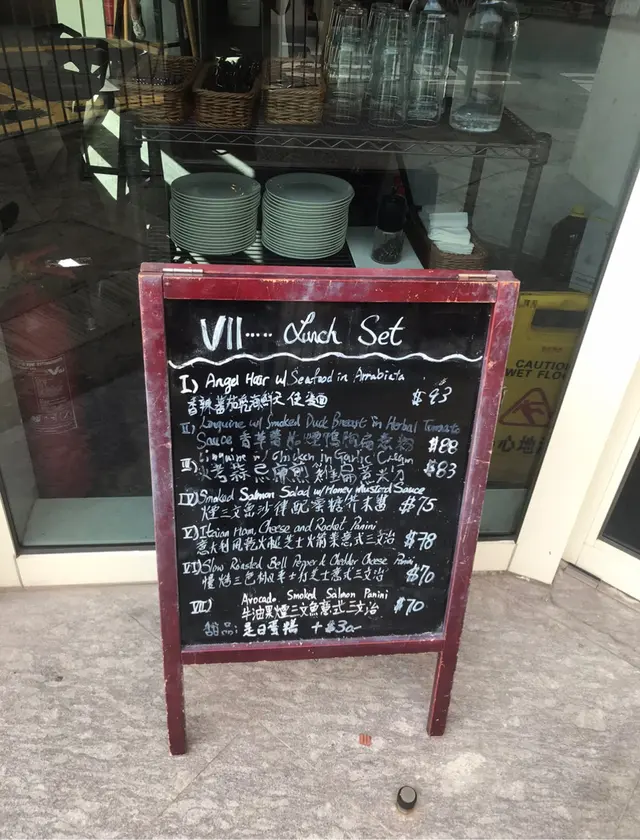 VII..... Lunch Set
I) Angel Hair w/ Seafood in Arrabiata
香辣蕃茄 海鮮天使麵 $93
II) Linguine w/ Smoked Duck Breast in Herbal Tomato
Sauce 香草蕃茄煙鴨胸扁意粉 $88
III) Linguine w/ Chicken in Garlic Cream
蒜忌廉 雞扁意粉 $83
IV) Smoked Salmon Salad w/ Honey Mustard Sauce
煙三文魚沙律配蜜糖芥末醬 $75
V) Italian Ham, Cheese and Rocket Panini
意大利風乾火腿芝士火箭菜意式三文治 $78
VI) Slow Roasted Bell Pepper & Cheddar Cheese Panini
慢烤三色椒車打芝士意式三文治 $70
VII) Avocado Smoked Salmon Panini
牛油果煙三文魚意式三文治 $70
甜品: 是日蛋糕 +$30
CAUTION
WET FLOOR
小心地滑